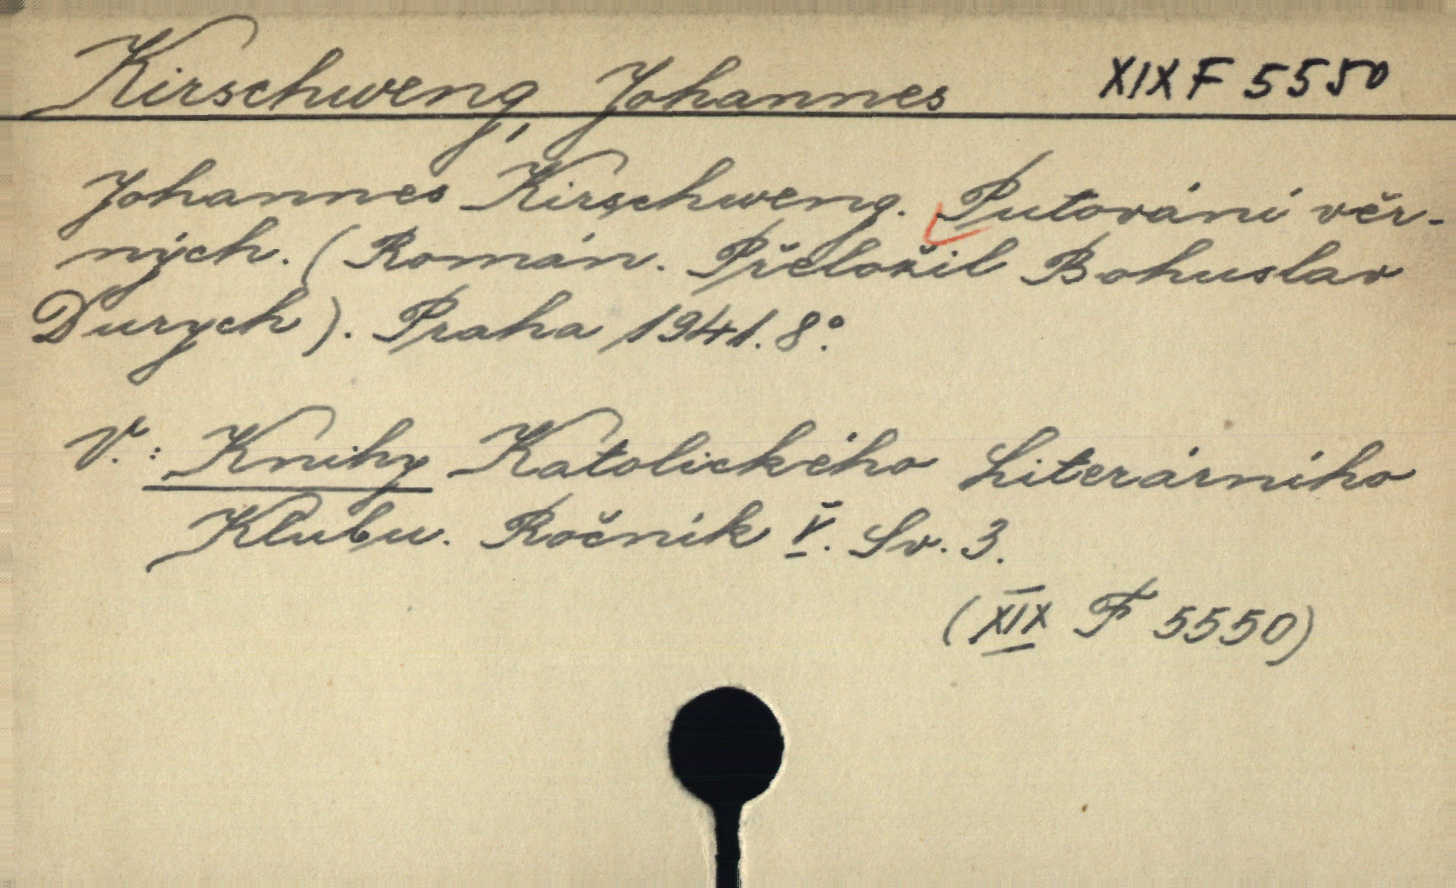 Kirschweng, Johannes XIX F 5550
Johannes Kirschweng. Putování věr-
ných. (Román. Přeložil Bohuslav
Durych). Praha 1941. 8°.
V.: Knihy Katolického Literárního
Klubu. Ročník V. Sv. 3.
(XIX F 5550)